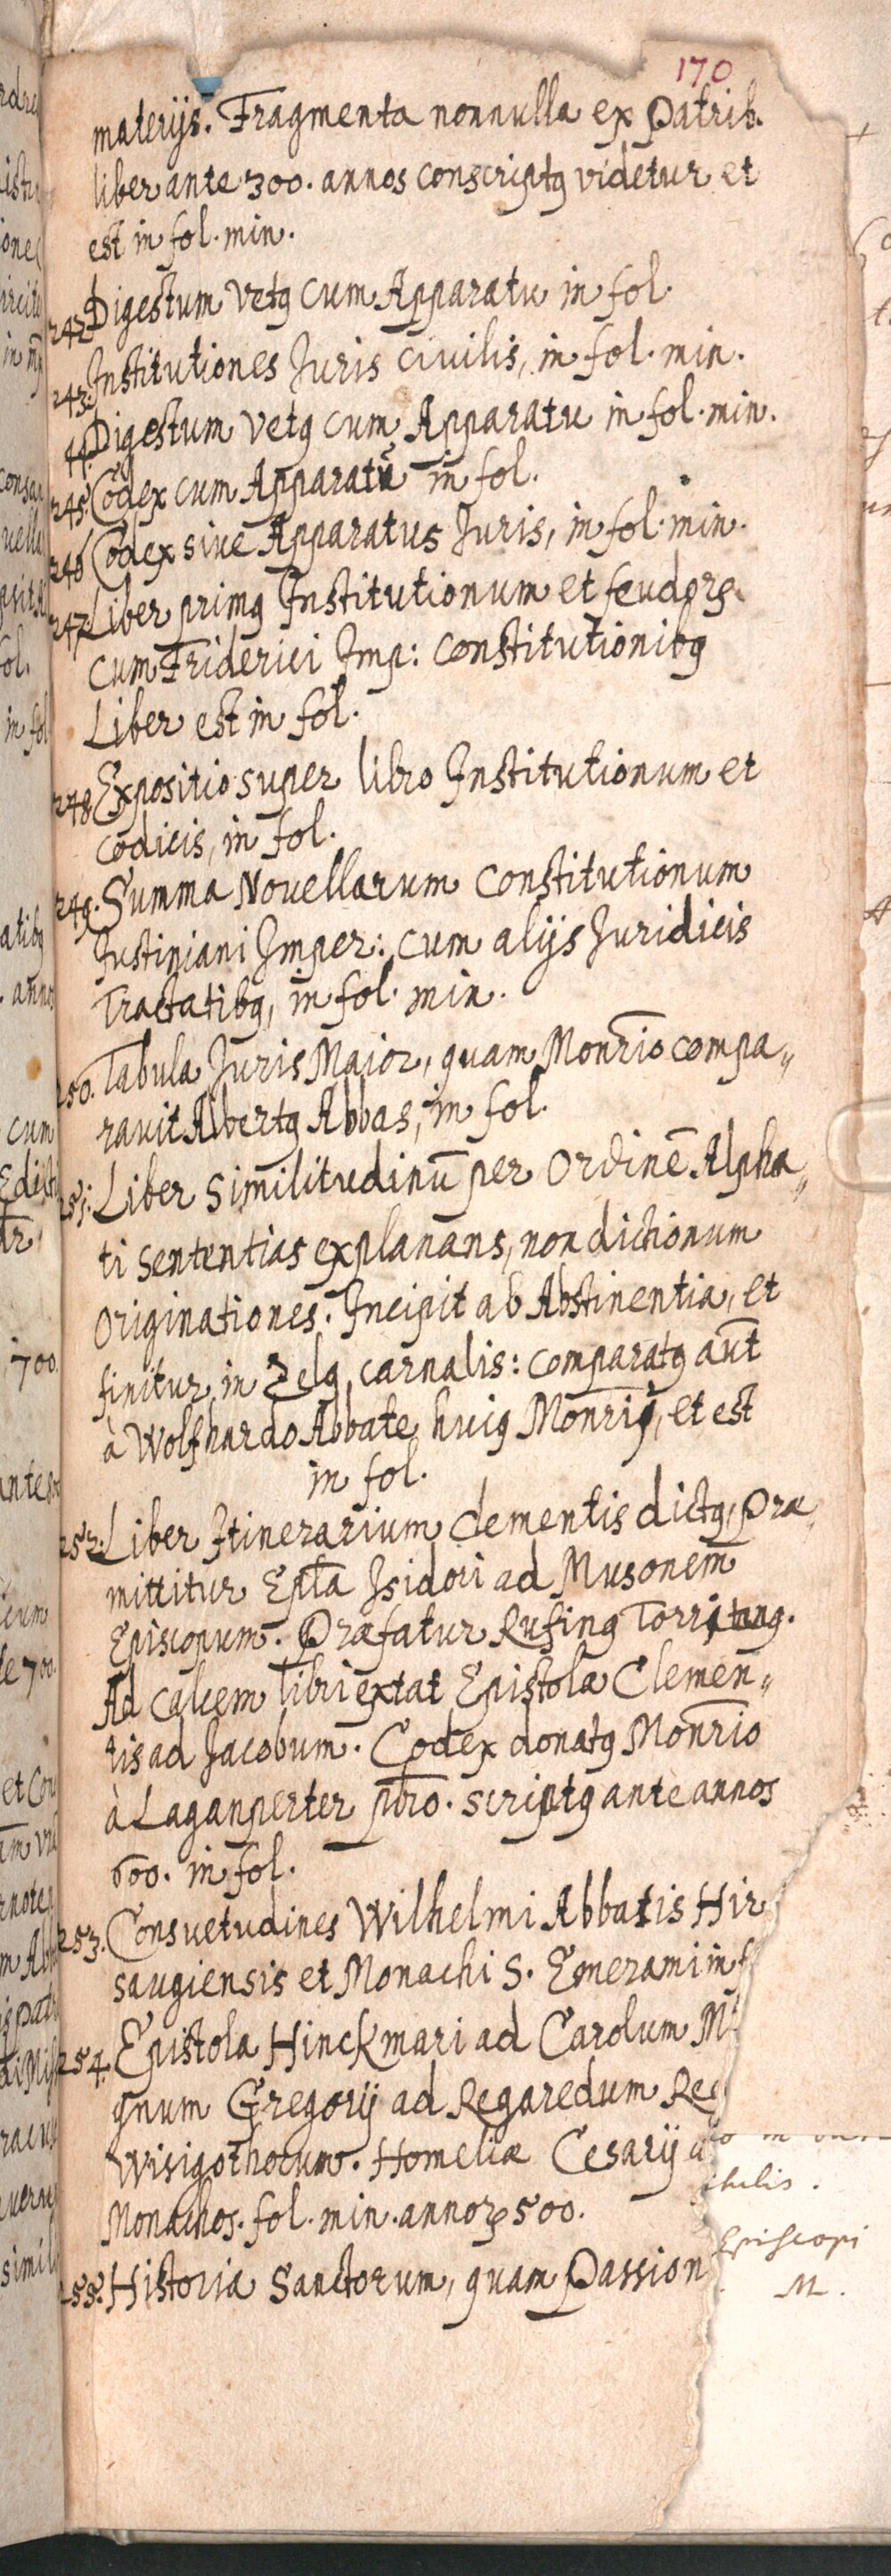 170
materijs. Fragmenta nonnulla ex Patrib.
liber ante 300. annos conscriptꝯ videtur et
est in fol. min.
242. Digestum Vetꝯ cum Apparatu in fol.
243. Institutiones Juris Civilis, in fol. min.
44. Digestum Vetꝯ cum Apparatu in fol. min.
245. Codex cum Apparatu in fol.
246 Codex sive Apparatus Juris, in fol. min.
247. Liber primꝯ Institutionum et feudorꝝ
cum Friderici Imp: Constitutionibꝯ
Liber est in fol.
248 Expositio super libro Institutionum et
codicis, in fol.
249. Summa Novellarum Constitutionum
Justiniani Imper: cum alijs Juridicis
Tractatibꝯ, in fol. min.
250. Tabula Juris Maior, quam Monrio͞ compa„
ravit Albertꝯ Abbas, in fol.
251. Liber Similitudinū per Ordinē Alpha„
ti sententias explanans, non dictionum
Originationes. Incipit ab Abstinentia, et
finitur in Zelꝯ carnalis: comparatꝯ aūt
à Wolfhardo Abbate huiꝯ Monrij͞, et est
in fol.
252. Liber Itinerarium Clementis dictꝯ, Præ„
mittitur Ep̄ta Isidori ad Musonem
Episcopum. Præfatur Rufinꝯ
Ad calcem libri extat Epistola Clemen„
tis ad Jacobum. Codex donatꝯ Monrio͞
à Laganperter pb̄ro. scriptꝯ ante annos
600. in fol.
253. Consuetudines Wilhelmi Abbatis Hir
saugiensis et Monachi S. Emerami in f
254. Epistola Hinckmari ad Carolum M
gnum Gregorij ad Regaredum Re
Wisigothorum. Homeliæ Cesarij a
Monachos. fol. min. annorꝝ 500.
255. Historia Sanctorum, quam Passion
thilis.
Episcopi
M.